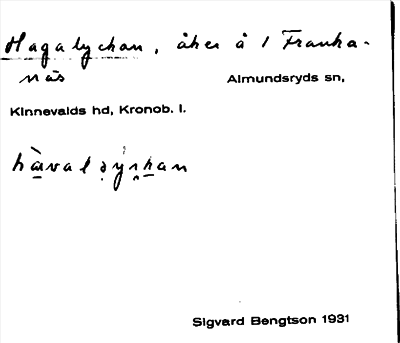 Hagalychan, åker å 1 Franka-
näs
Almundsryds sn,
Kinnevalds hd, Kronob. l.
Sigvard Bengtson 1931